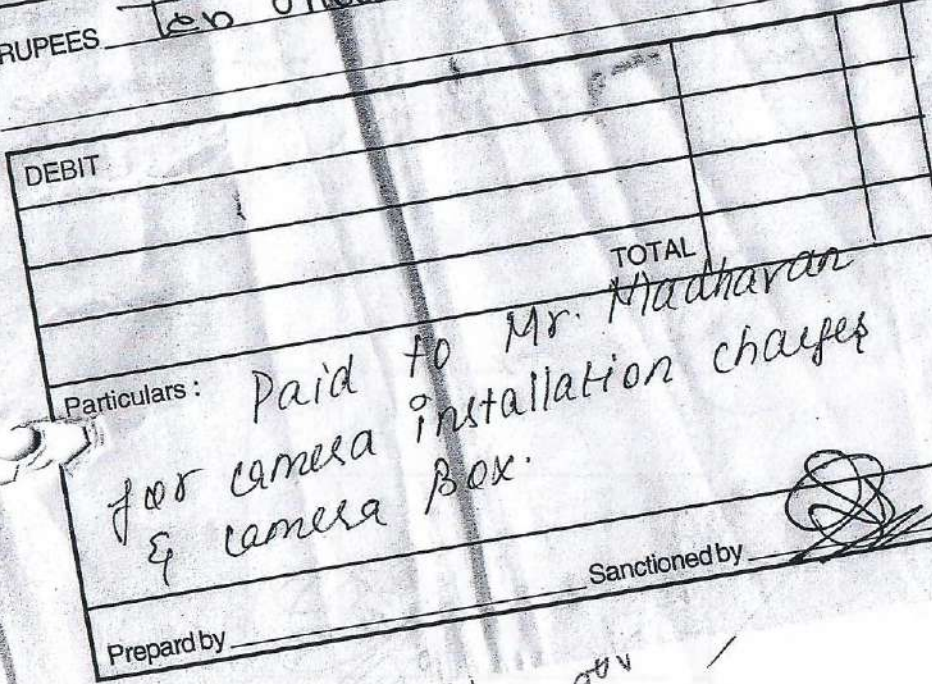 RUPEES Ten
DEBIT
TOTAL
Particulars : Paid to Mr. Madhavan
for camera installation charges
& camera Box.
Sanctioned by
Prepard by